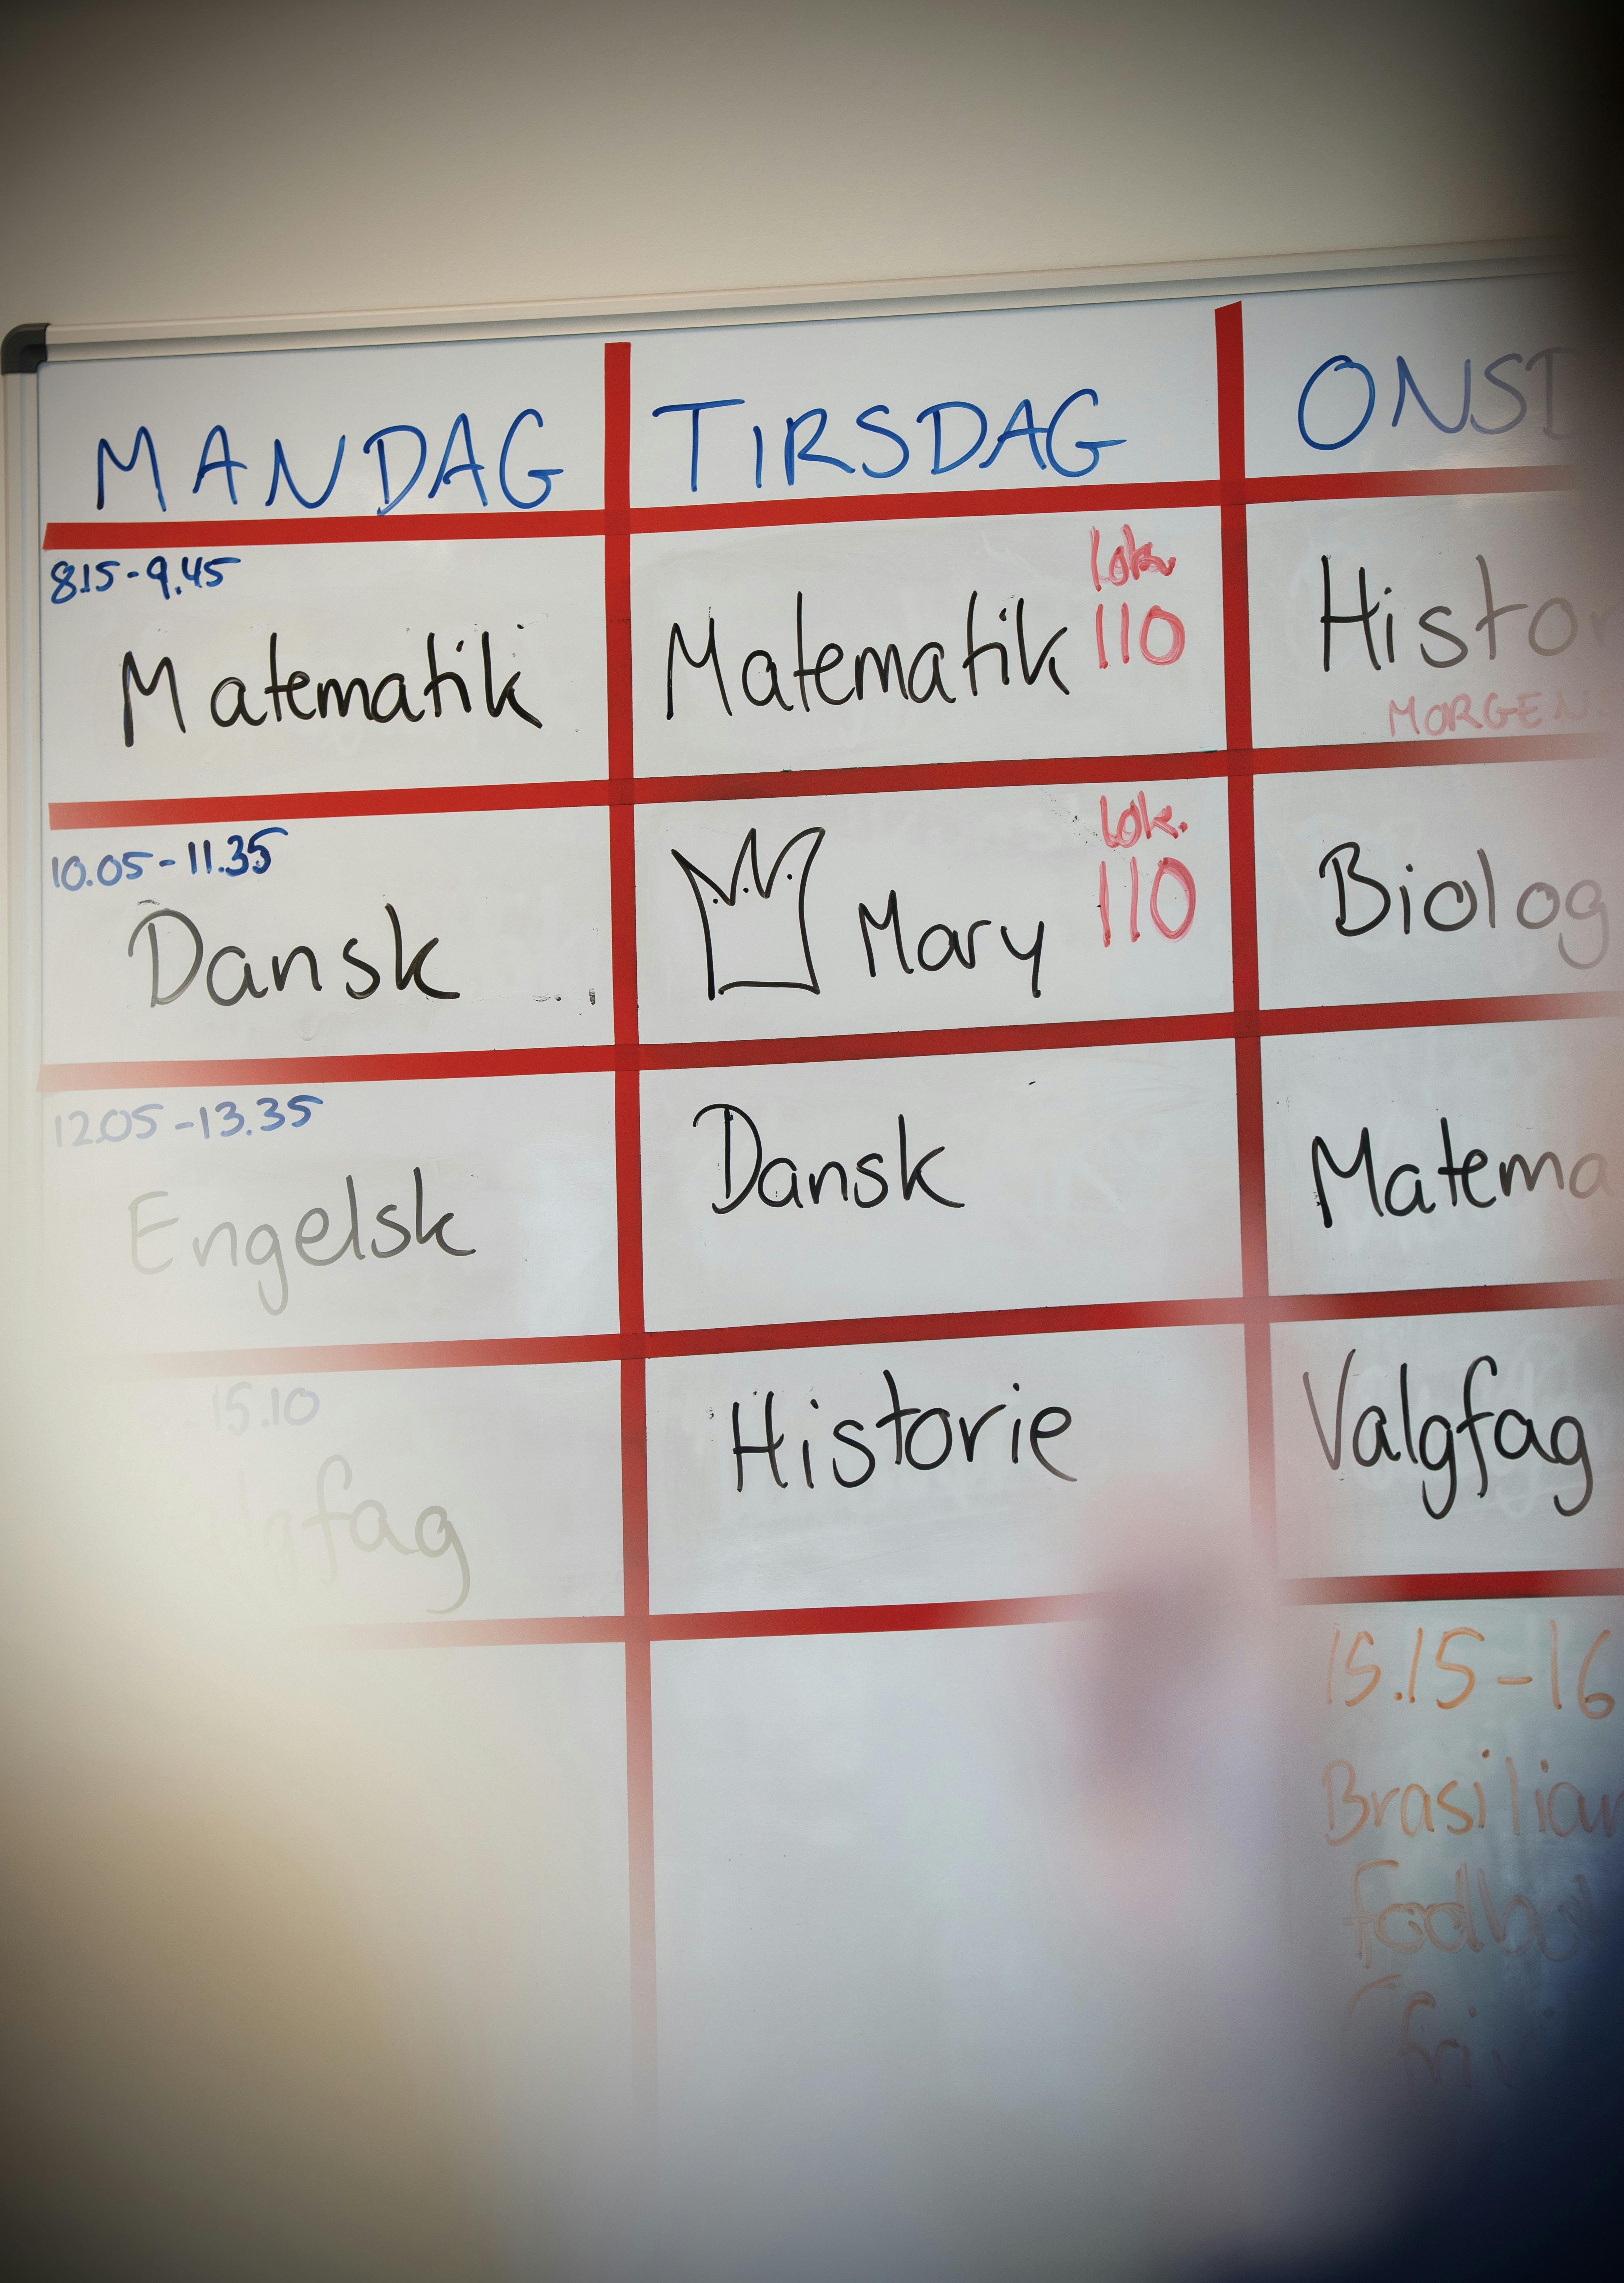 MANDAG TIRSDAG ONSD
8.15-9.45
Matematik
Matematik
lok.
110
Histor
MORGEN
10.05-11.35
Dansk
Mary
lok.
110
Biolog
12.05-13.35
Engelsk
Dansk
Matema
15.10
gfag
Historie
Valgfag
15.15-16
Brasilian
fodbol